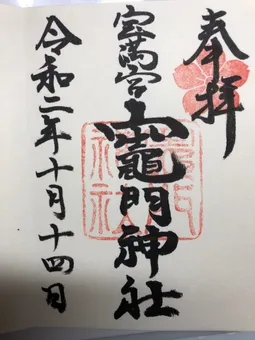 奉拝
宝満宮
竈門神社
令和二年十月十四日